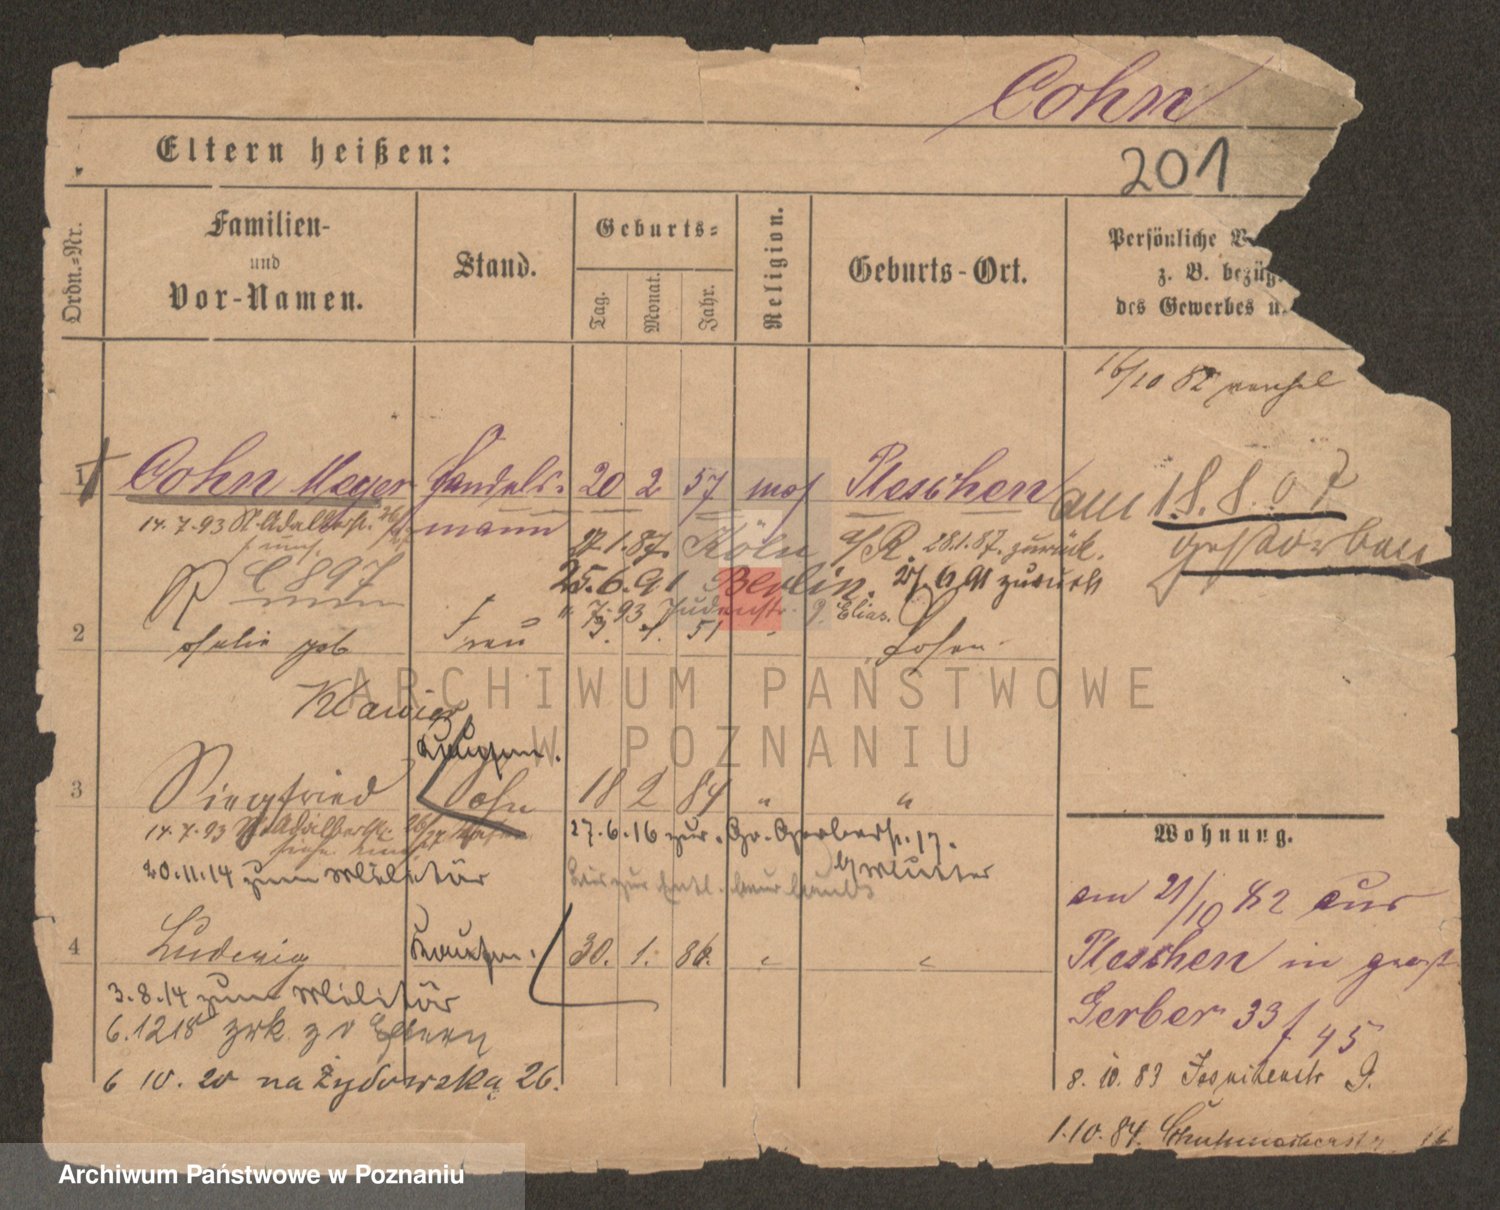 Cohn
201
Eltern heißen:
Ordn.-Nr.
Familien-
und
Vor-Namen.
Stand.
Geburts-
Tag.
Monat.
Jahr.
Religion.
Geburts-Ort.
Persönliche V
z. B. bezüg.
des Gewerbes u.
16/10 82
1 Cohn Meyer Handels- 20 2 57 mos Pleschen am 18.8.07
mann gestorben
14.7.93 St. Adalbertstr.
27.1.87. Köln a/R. 28.1.87. zurück.
C 897
25.6.91 Berlin. 27/6 91 zurück
7.93 Judenstr. 9. Elias.
2 geb Frau 51 " Posen
Siegfried
3 Sohn 18 2 84 " "
14.7.93 St. Adalbertstr.
27.6.16 zur Gr. Gerberstr. 17.
20.11.14 zum Militär
z Mutter
4 Ludwig Kaufm. 30. 1. 86. " "
3.8.14 zum Militär
6.1218 zrk z d Eltern
6 10. 20 na Żydowską 26.
Wohnung.
am 21/10 82 aus
Pleschen in groß
Gerber 33 f 45
8.10.83 Jesuitenstr 9.
1.10.84. Schuhmacherstr
ARCHIWUM PAŃSTWOWE
W POZNANIU
Archiwum Państwowe w Poznaniu